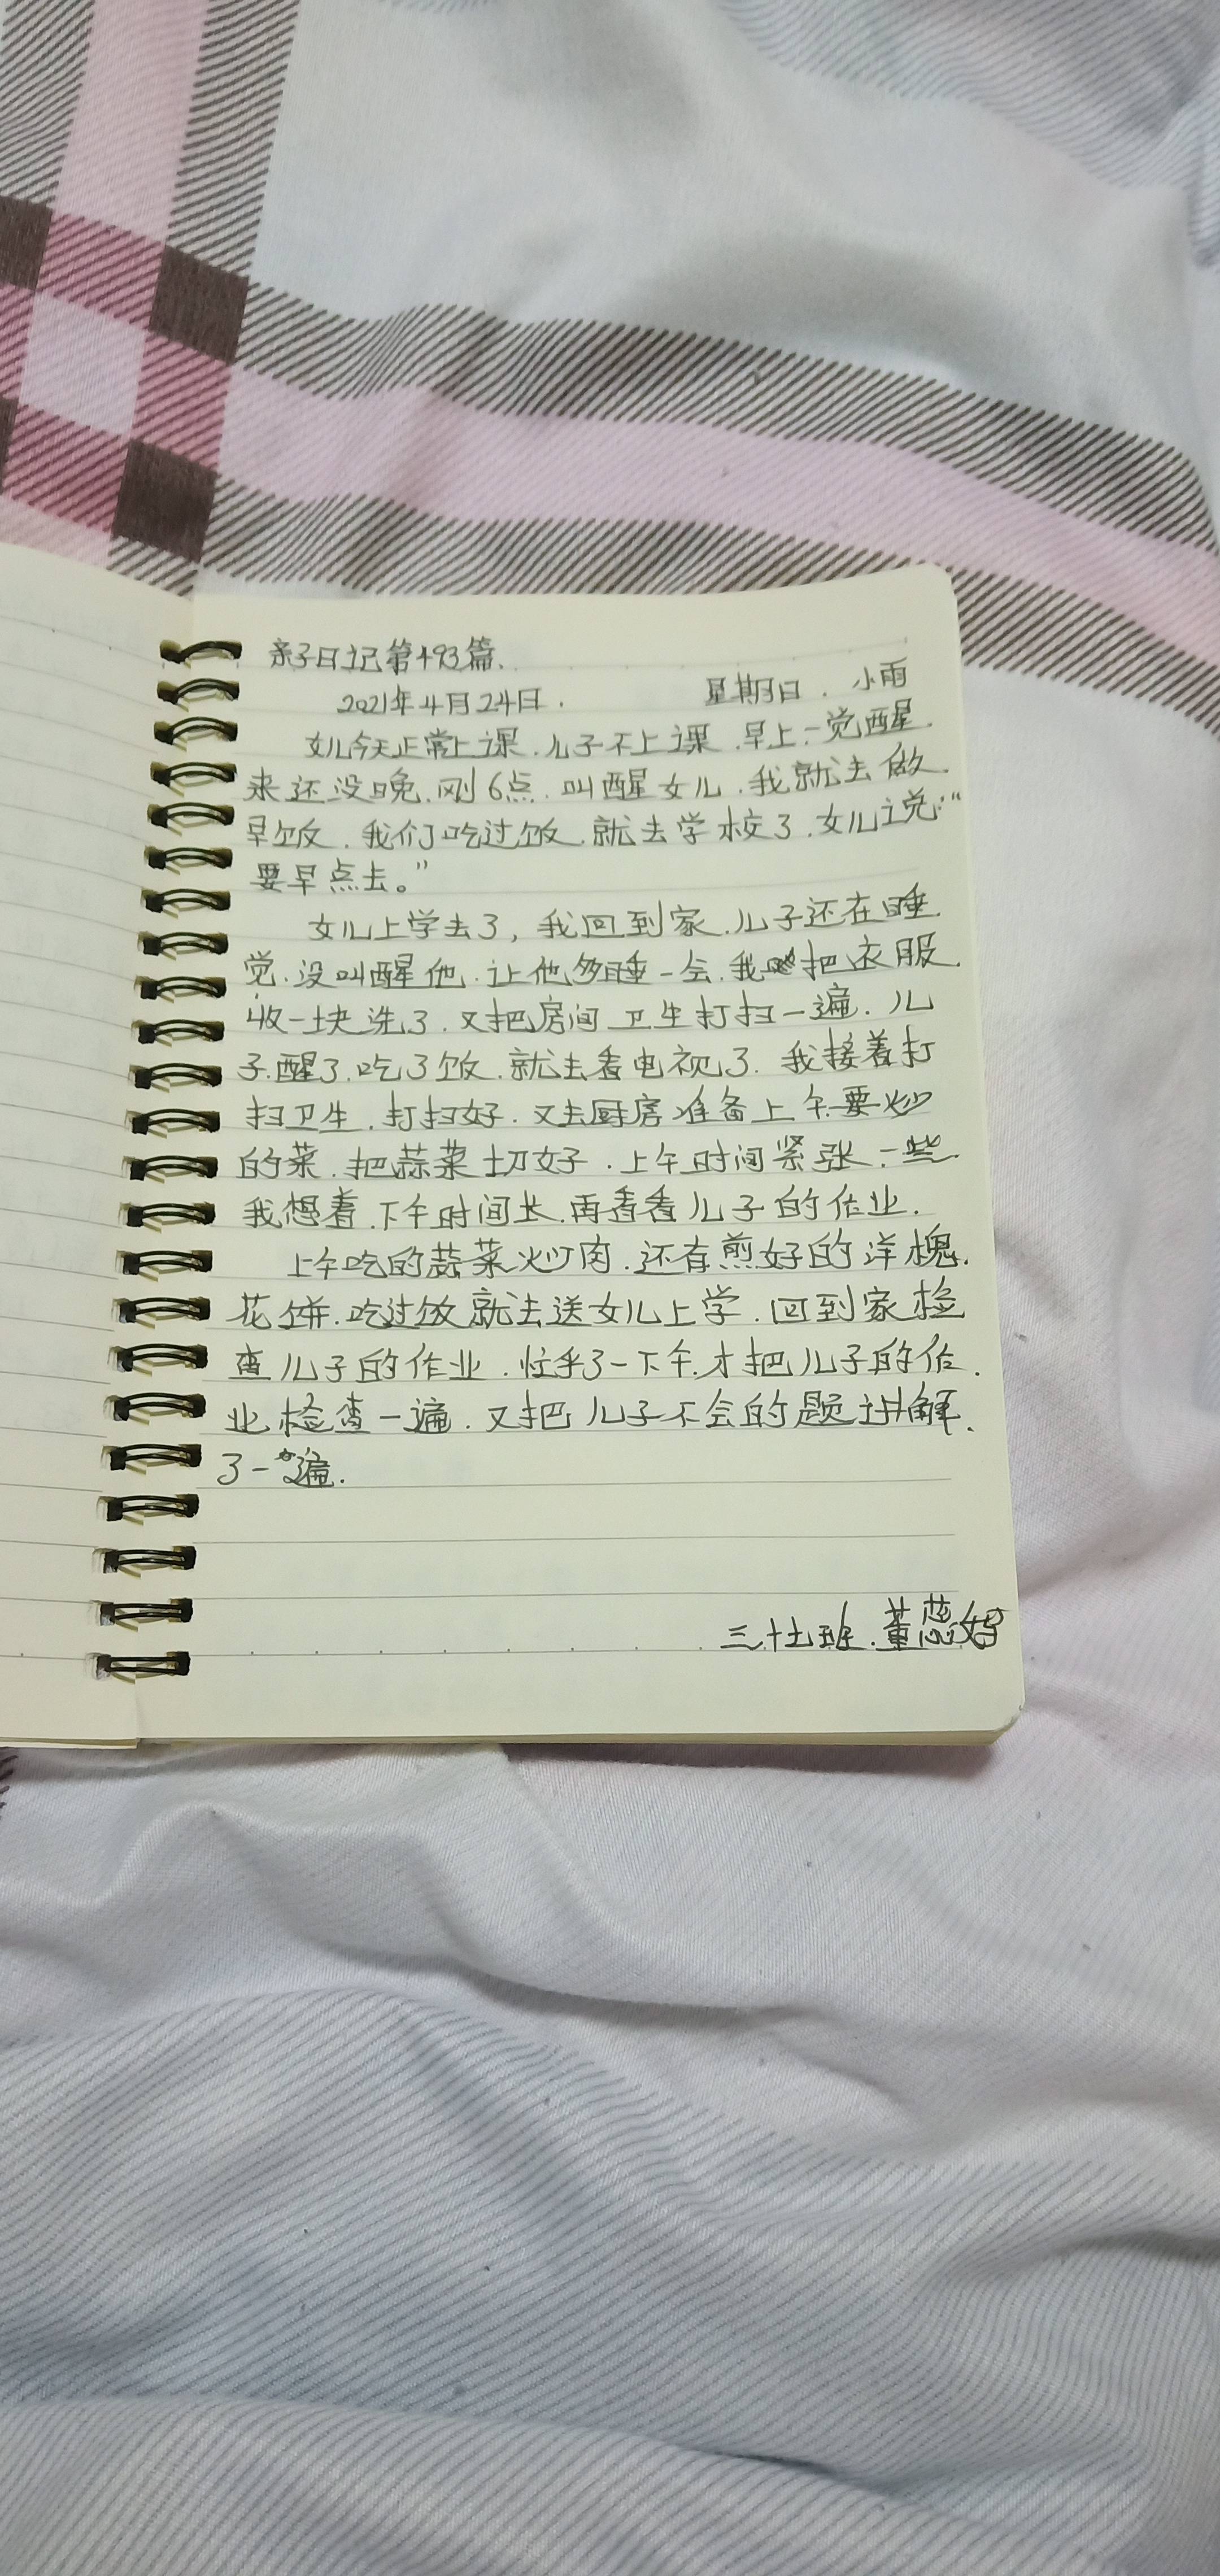 亲子日记第493篇.
2021年4月24日. 星期日. 小雨
女儿今天正常上课.儿子不上课.早上一觉醒
来还没晚.刚6点.叫醒女儿.我就去做
早饭.我们吃过饭.就去学校了.女儿说:“
要早点去。”
女儿上学去了,我回到家.儿子还在睡
觉.没叫醒他.让他多睡一会.我把衣服
收一块洗了.又把房间卫生打扫一遍.儿
子醒了.吃了饭.就去看电视了.我接着打
扫卫生.打扫好.又去厨房准备上午要炒
的菜.把蒜菜切好.上午时间紧张一些.
我想着.下午时间长.再看看儿子的作业.
上午吃的蒜菜炒肉.还有煎好的洋槐.
花饼.吃过饭就去送女儿上学.回到家检
查儿子的作业.忙乎了一下午.才把儿子的作.
业检查一遍.又把儿子不会的题讲解.
了一遍.
三.十七班.董蕊